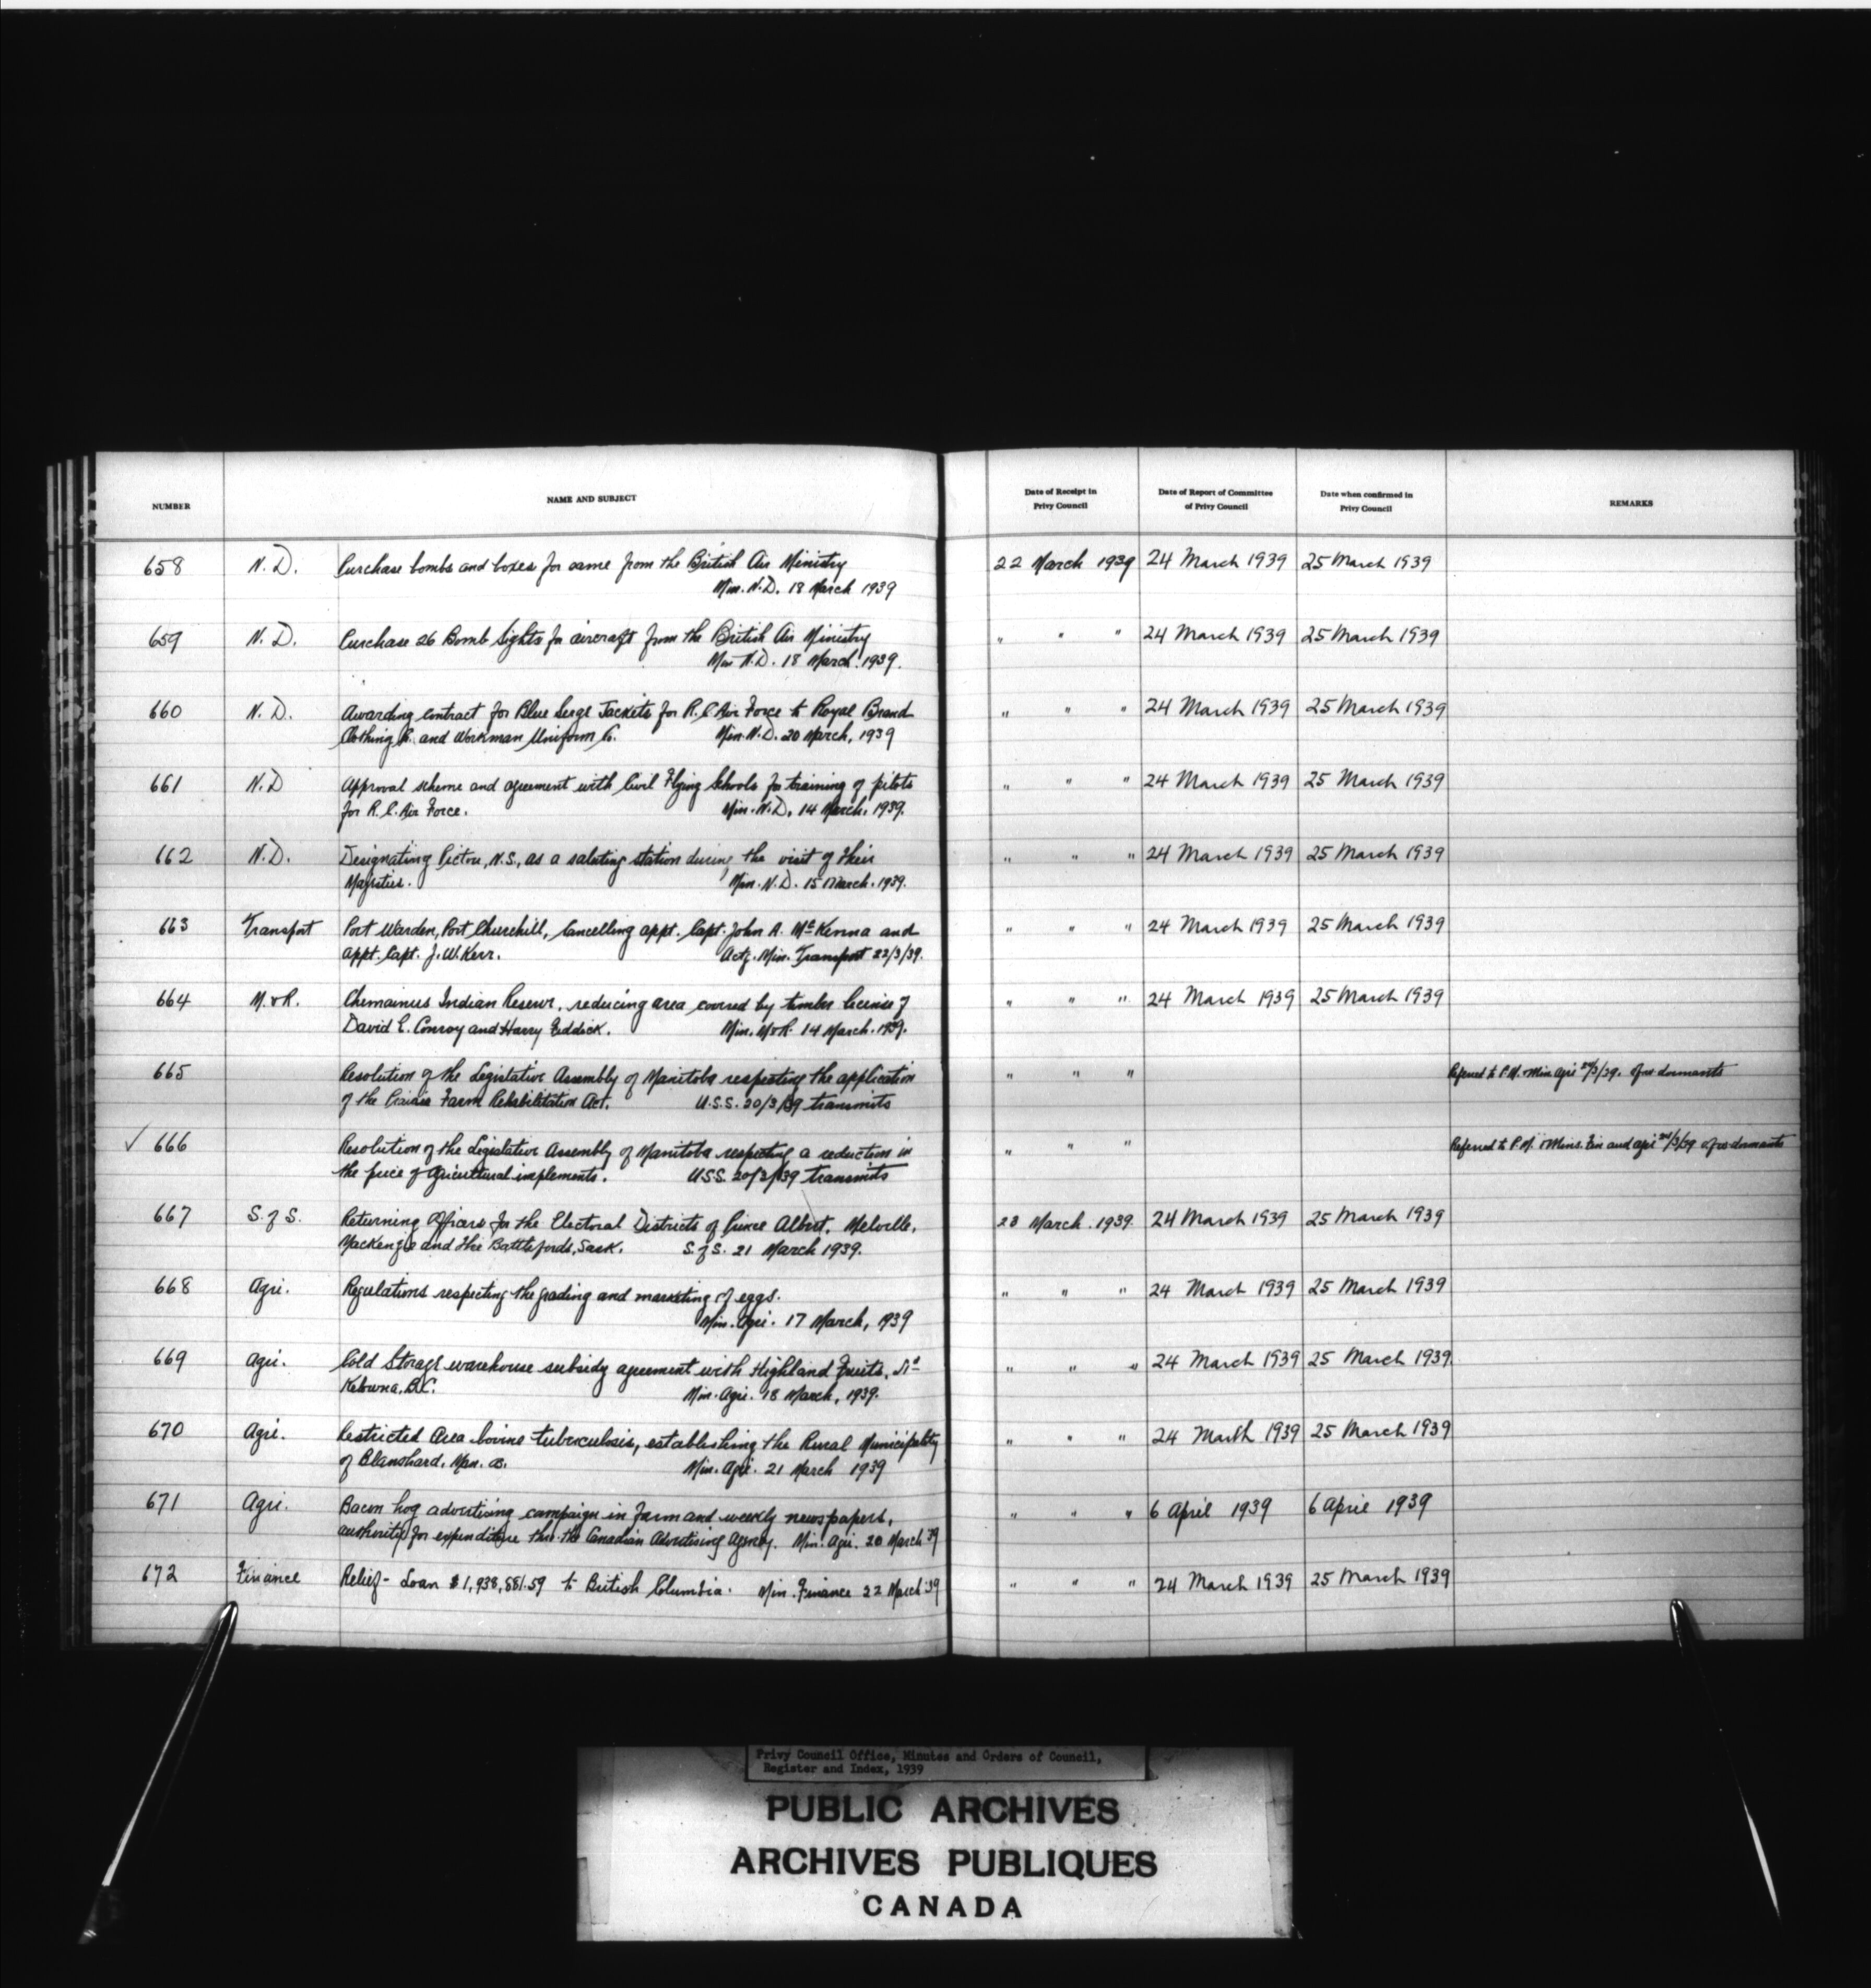 NUMBER NAME AND SUBJECT Date of Receipt in Privy Council Date of Report of Committee of Privy Council Date when confirmed in Privy Council REMARKS
658 N.D. Purchase bombs and boxes for same from the British Air Ministry 22 March 1939 24 March 1939 25 March 1939
Min. N.D. 18 March 1939
659 N.D. Purchase 26 Bomb Sights for aircraft from the British Air Ministry " " " 24 March 1939 25 March 1939
Min N.D. 18 March 1939.
660 N.D. Awarding contract for Blue Serge Jackets for R.C. Air Force to Royal Brand " " " 24 March 1939 25 March 1939
Clothing Co. and Workman Uniform Co. Min. N.D. 20 March, 1939
661 N.D Approval scheme and agreement with Civil Flying Schools for training of pilots " " " 24 March 1939 25 March 1939
for R.C. Air Force. Min. N.D. 14 March, 1939.
662 N.D. Designating Pictou, N.S., as a saluting station during the visit of Their " " " 24 March 1939 25 March 1939
Majesties. Min. N.D. 15 March. 1939.
663 Transport Port Warden, Port Churchill, Cancelling appt. Capt. John A. McKenna and " " " 24 March 1939 25 March 1939
appt. Capt. J.W. Kerr. Actg. Min. Transport 22/3/39.
664 M. & R. Chemainus Indian Reserve, reducing area covered by timber license of " " " 24 March 1939 25 March 1939
David E. Conroy and Harry Min. M & R. 14 March. 1939.
665 Resolution of the Legislative Assembly of Manitoba respecting the application " " " Referred to P.M. Min Agri /3/39. dormants
of the Prairie Farm Rehabilitation Act. U.S.S. 20/3/39 transmits
666 Resolution of the Legislative Assembly of Manitoba respecting a reduction in " " " Referred to P.M. & Mins. Fin and Agri /3/39 dormants
the price of Agricultural implements. U.S.S. 20/3/39 transmits
667 S. of S. Returning Officers for the Electoral Districts of Prince Albert, Melville, 23 March. 1939. 24 March 1939 25 March 1939
Mackenzie and The Battlefords, Sask. S. of S. 21 March 1939.
668 Agri. Regulations respecting the grading and marketing of eggs. " " " 24 March 1939 25 March 1939
Min. Agri. 17 March, 1939
669 Agri. Cold Storage warehouse subsidy agreement with Highland Fruits, " " " 24 March 1939 25 March 1939.
Kelowna, B.C. Min. Agri. 18 March, 1939.
670 Agri. Restricted Area bovine tuberculosis, establishing the Rural Municipality " " " 24 March 1939 25 March 1939
of Blanshard, Man. as. Min. Agri. 21 March 1939
671 Agri. Bacon hog advertising campaign in farm and weekly newspapers, " " " 6 April 1939 6 April 1939
authority for expenditure thro the Canadian Advertising Agency. Min. Agri. 20 March 39
672 Finance Relief - Loan $1,938,881.59 to British Columbia. Min. Finance 22 March 39 " " " 24 March 1939 25 March 1939
Privy Council Office, Minutes and Orders of Council,
Register and Index, 1939
PUBLIC ARCHIVES
ARCHIVES PUBLIQUES
CANADA